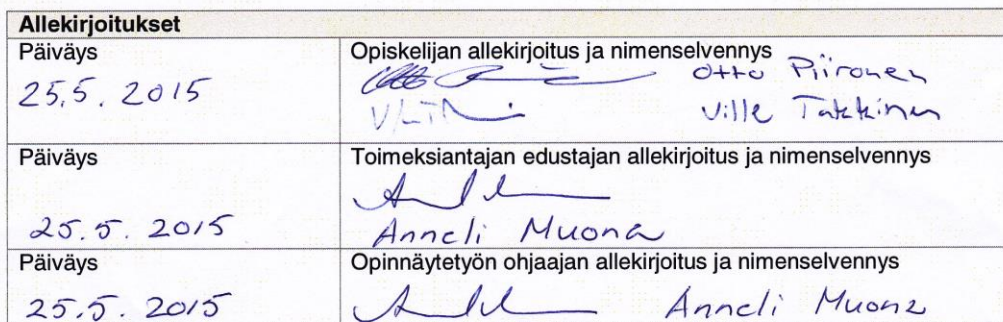 Allekirjoitukset
Päiväys
Opiskelijan allekirjoitus ja nimenselvennys
25.5. 2015
Otto Piironen
Ville Takkinen
Päiväys
Toimeksiantajan edustajan allekirjoitus ja nimenselvennys
25.5. 2015
Anneli Muona
Päiväys
Opinnäytetyön ohjaajan allekirjoitus ja nimenselvennys
25.5. 2015
Anneli Muona